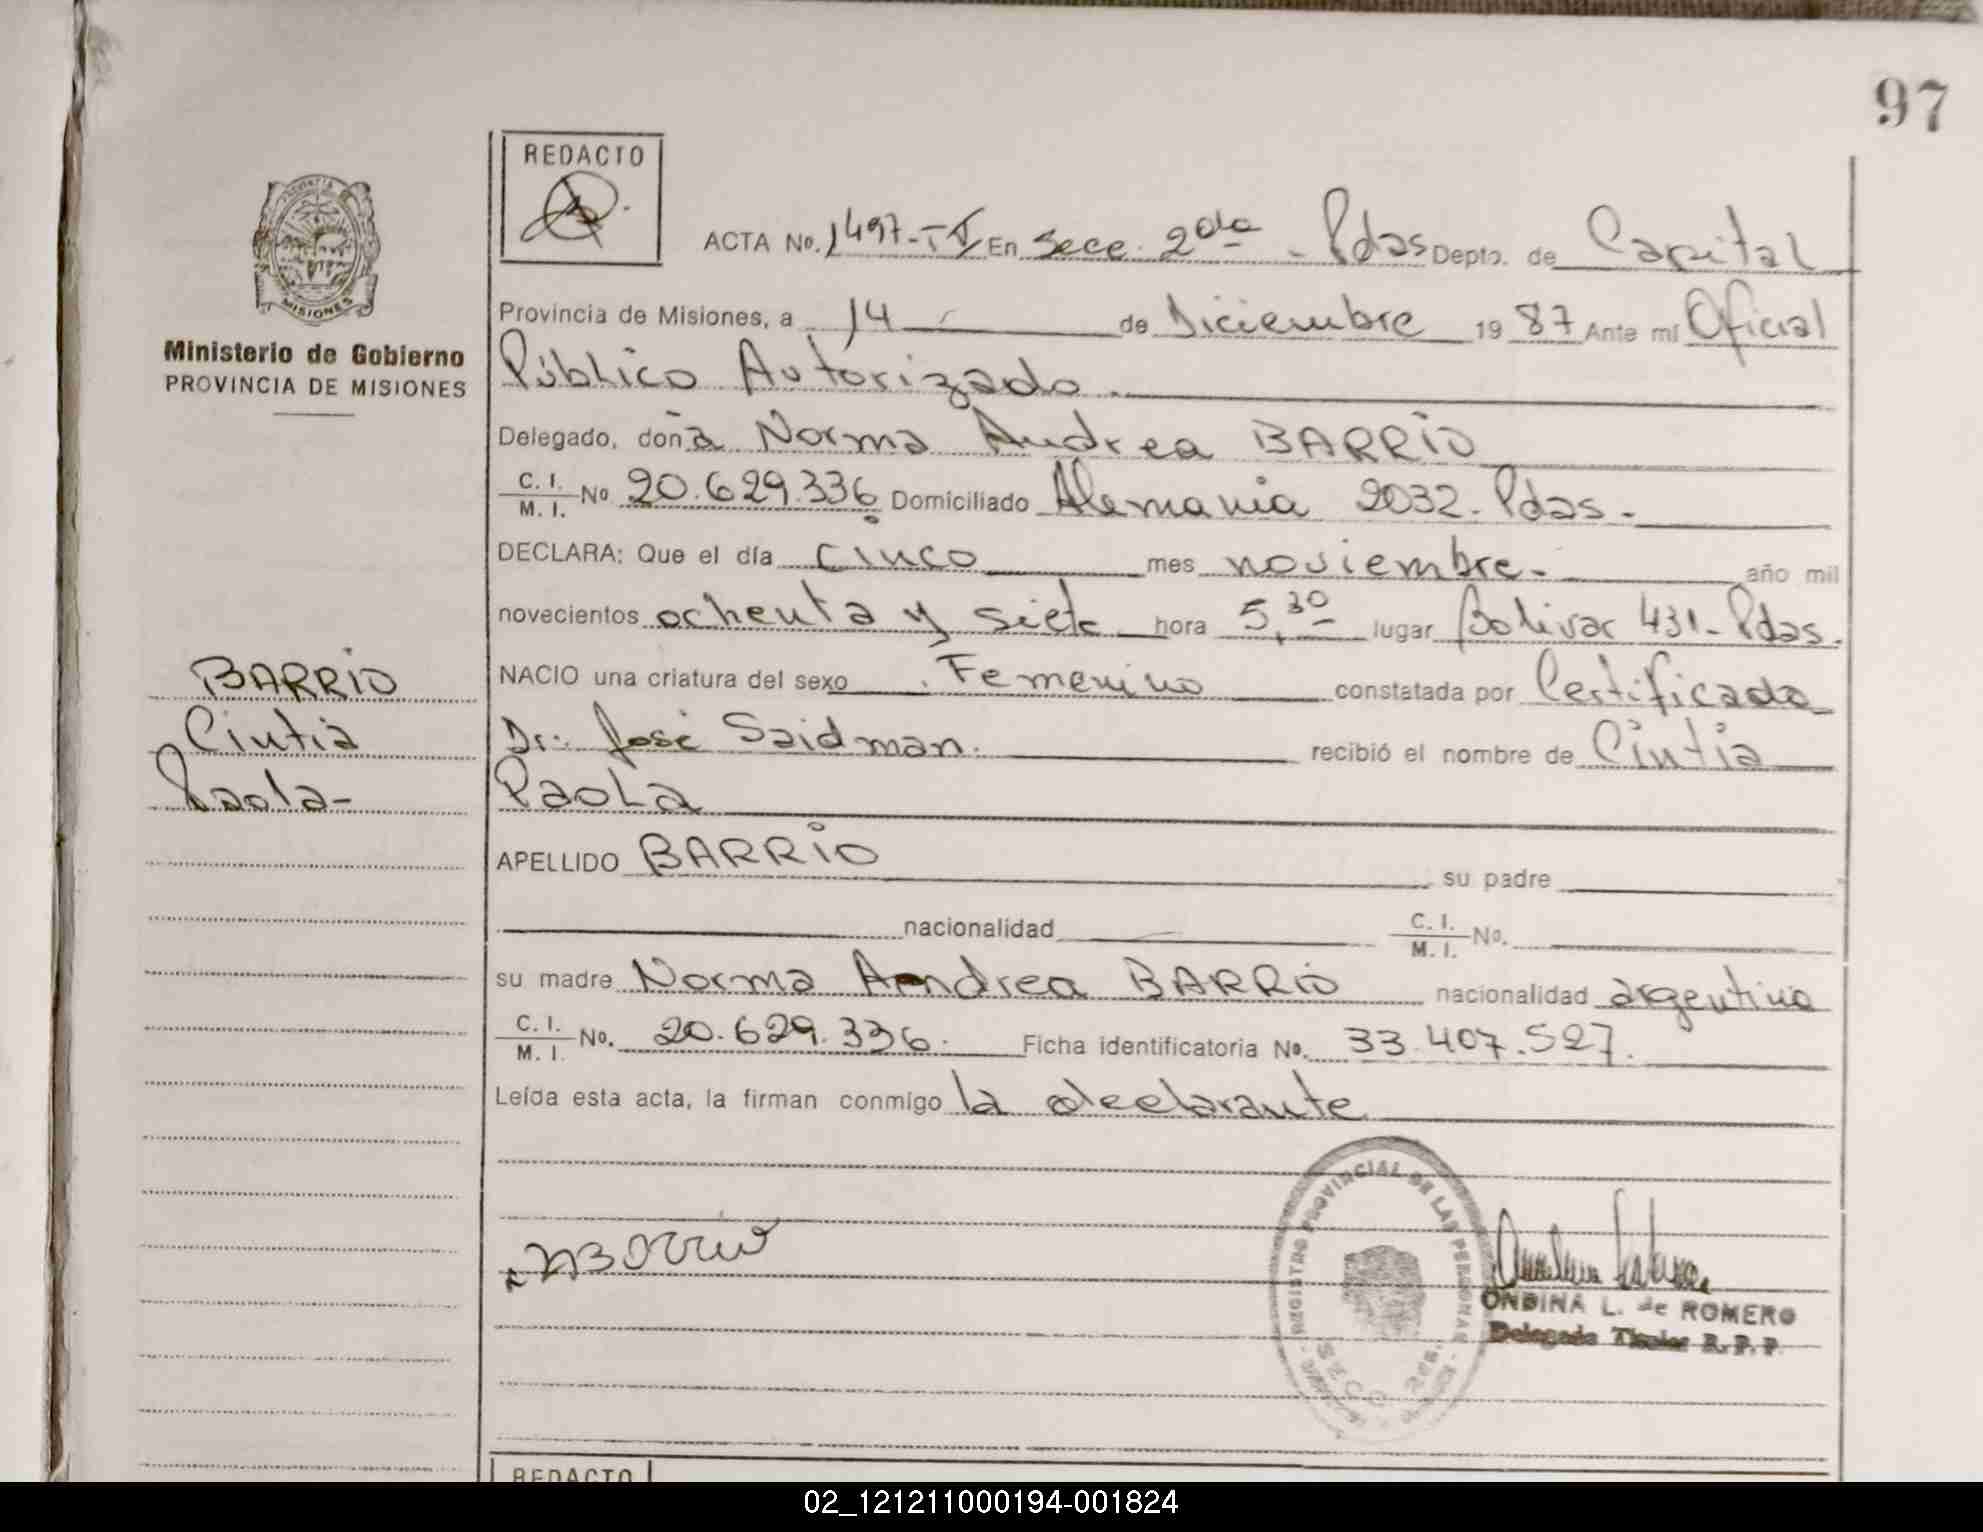 97
REDACTO
ACTA No. 1497-TJ En Secc. 2da - Pdas Depto. de Capital
MISIONES
Provincia de Misiones, a 14 de Diciembre 1987 Ante mí Oficial
Ministerio de Gobierno
PROVINCIA DE MISIONES
Público Autorizado
Delegado, doña Norma Andrea BARRIO
C. I. / M. I. No 20.629.336 Domiciliado Alemania 2032. Pdas.
DECLARA: Que el día cinco mes noviembre. año mil
novecientos ochenta y siete hora 5,30 lugar Bolivar 431- Pdas.
BARRIO
NACIO una criatura del sexo Femenino constatada por Certificado
Cintia
Dr: José Saidman. recibió el nombre de Cintia
Paola-
Paola
APELLIDO BARRIO su padre
nacionalidad C. I. / M. I. No.
su madre Norma Andrea BARRIO nacionalidad argentina
C. I. / M. I. No. 20.629.336. Ficha identificatoria No. 33.407.527.
Leída esta acta, la firman conmigo la declarante
REGISTRO PROVINCIAL DE LAS PERSONAS
NBarrio
ONDINA L. de ROMERO
Delegada Titular R. P. P.
REDACTO
02_121211000194-001824